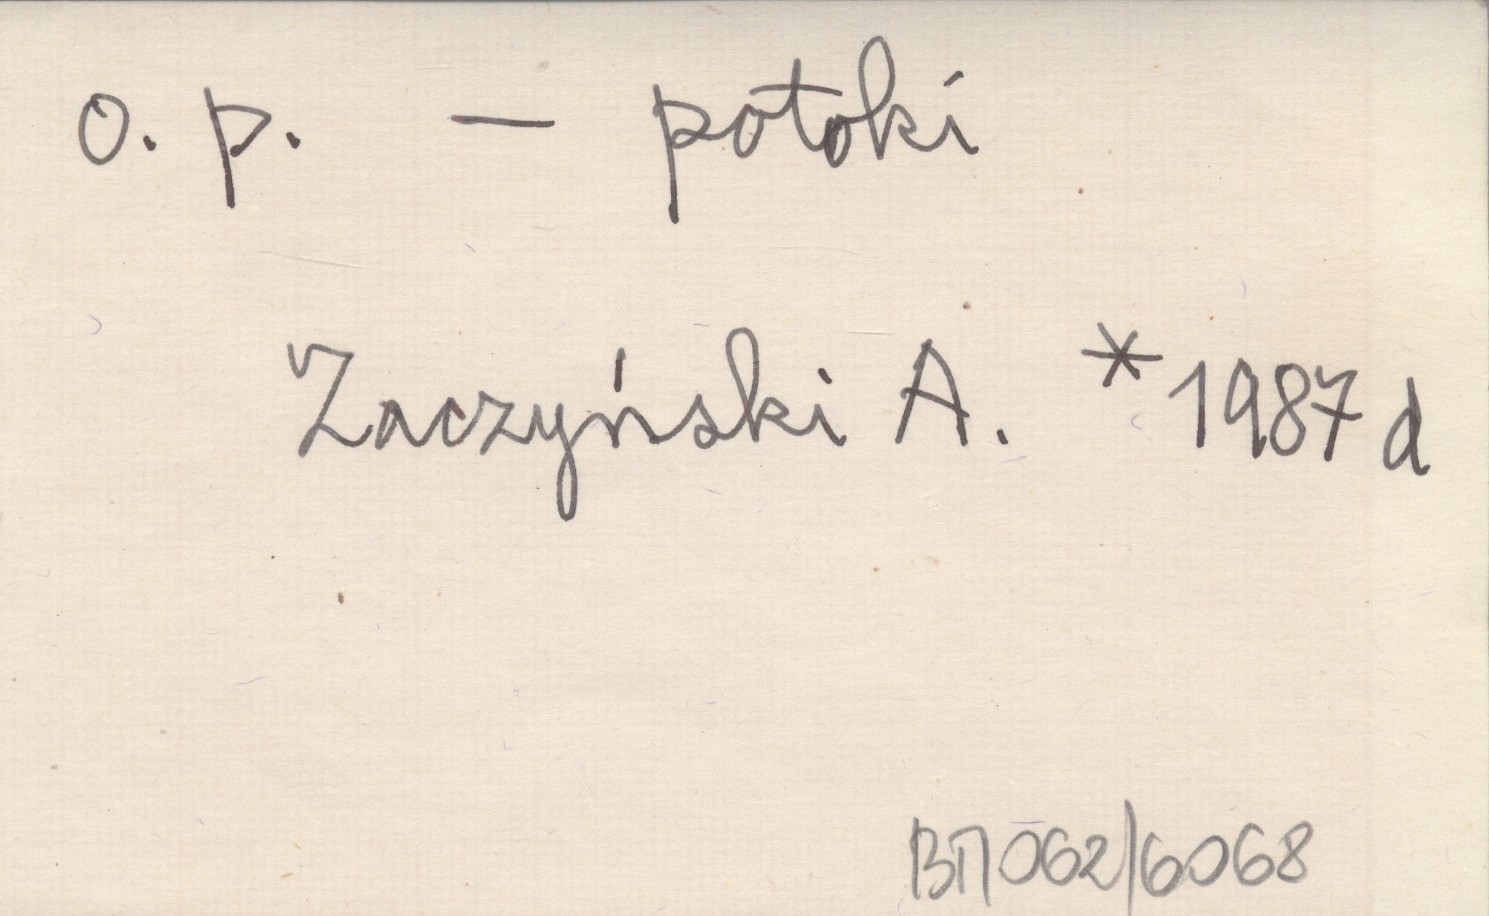 o. p. — potoki
Zaczyński A. *1987 d
ВП062/6068